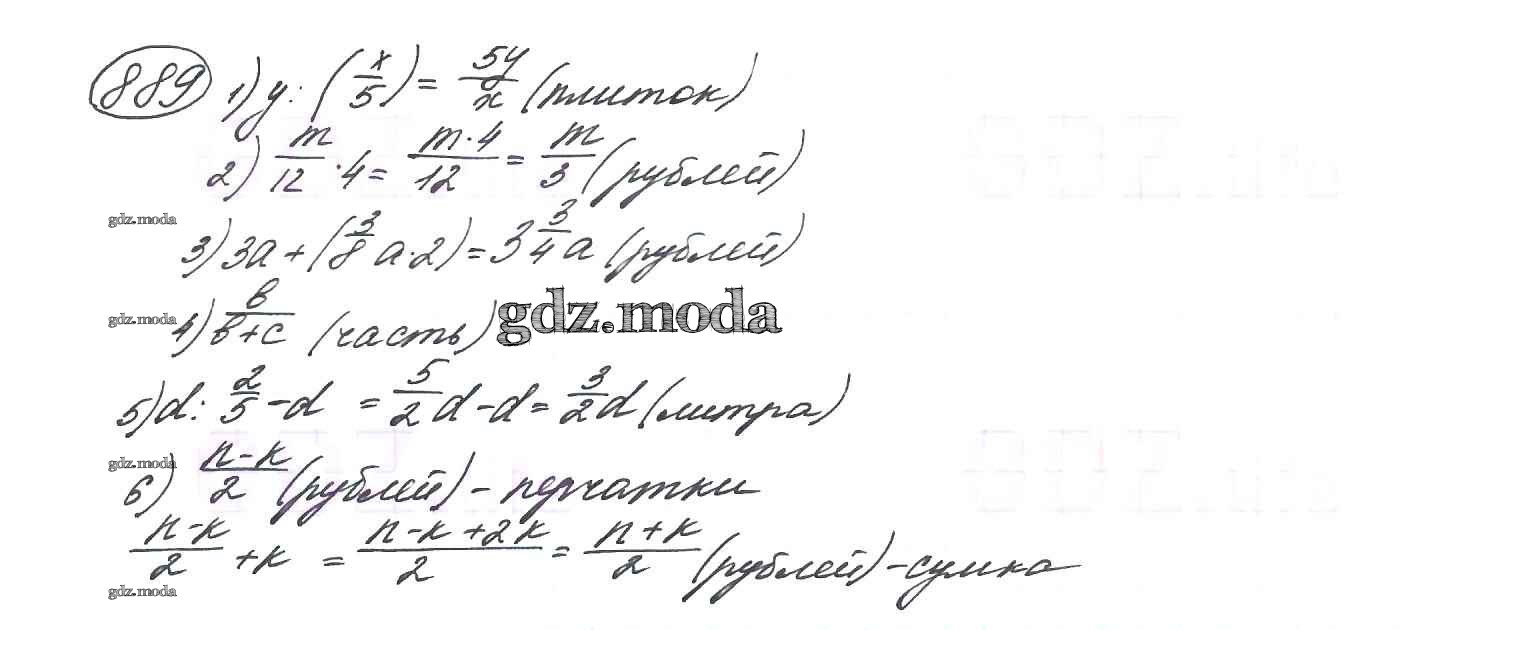 889 1) y : (x/5) = 5y/x (плиток)
2) m/12 · 4 = m·4/12 = m/3 (рублей)
gdz.moda
3) 3a + (3/8 a·2) = 3 3/4 a (рублей)
gdz.moda
4) в/в+с (часть)
gdz.moda
5) d : 2/5 - d = 5/2 d - d = 3/2 d (литра)
gdz.moda
6) n-к/2 (рублей) - перчатки
n-к/2 + к = n-к+2к/2 = n+к/2 (рублей) - сумка
gdz.moda